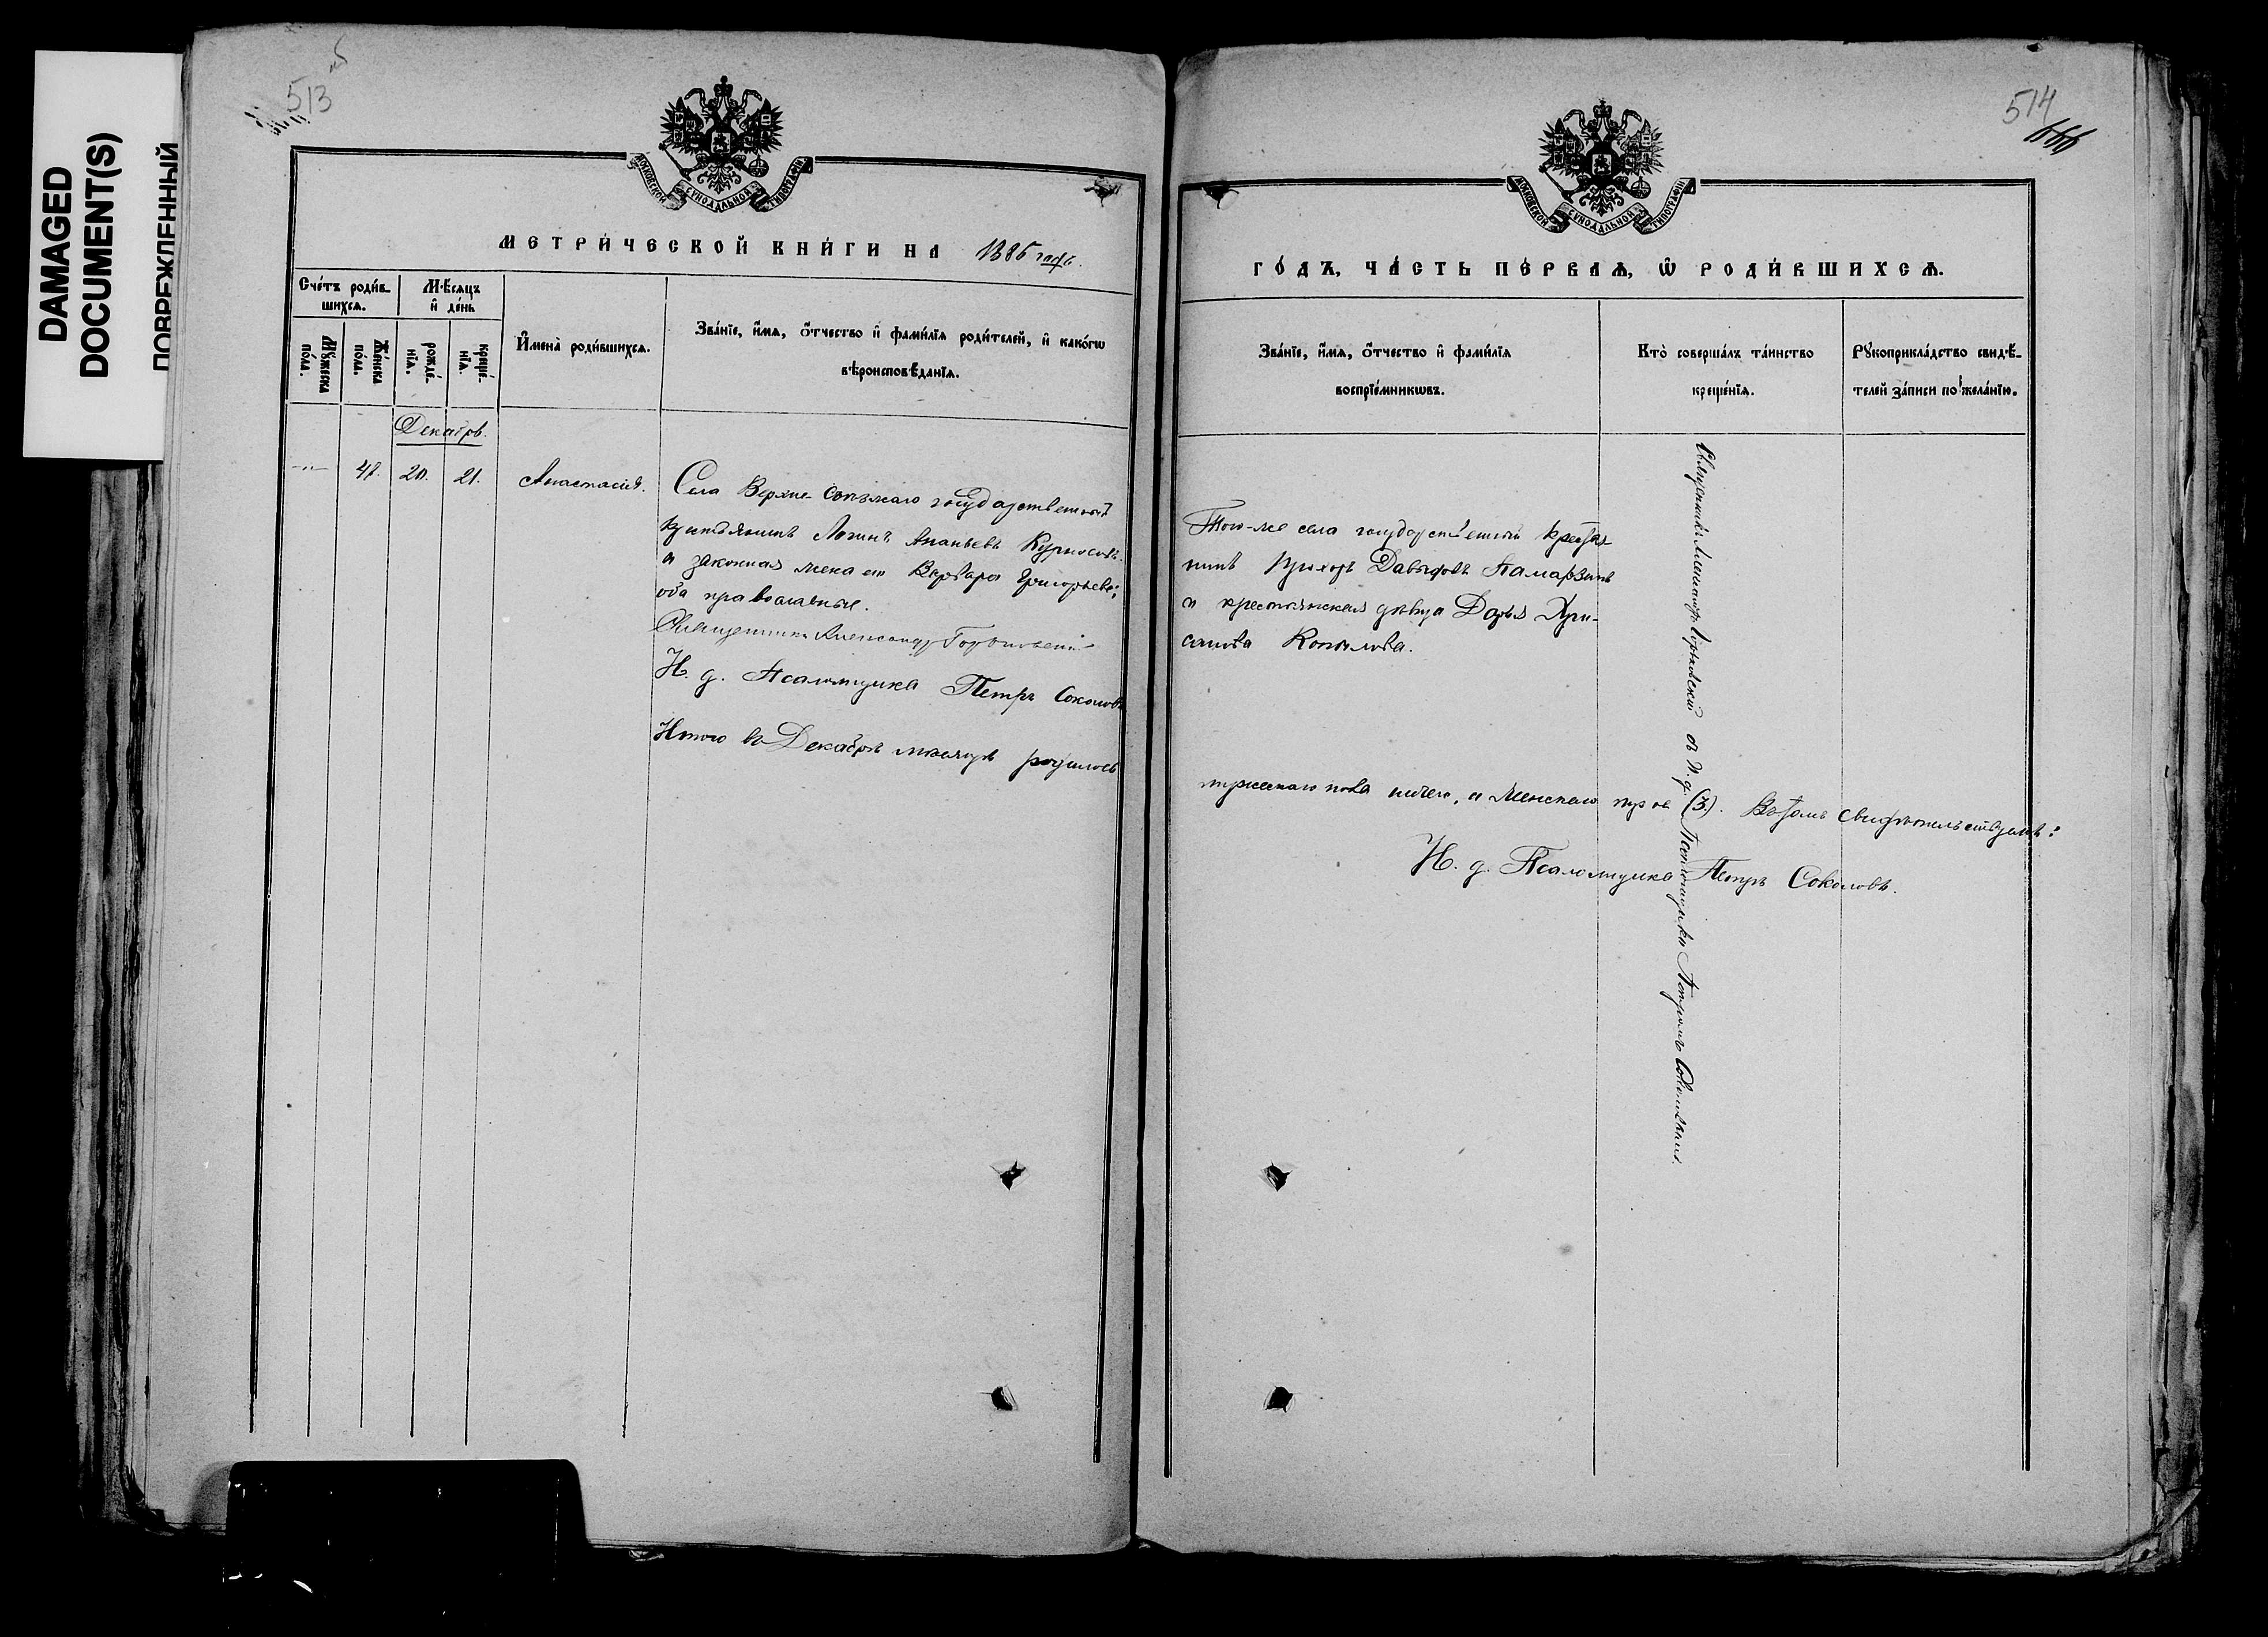 DAMAGED
DOCUMENT(S)
ПОВРЕЖДЕННЫЙ
513
МОСКОВСКОЙ СѴНОДАЛЬНОЙ ТИПОГРАФІИ
МЕТРИ́ЧЕСКОЙ КНИ́ГИ НА 1886 годъ.
Сче́тъ роди́в-
шихсѧ.
Мѣ́сѧцъ
и҆ де́нь
Мꙋ́жеска
по́ла.
Же́нска
по́ла.
рожде́-
нїѧ.
креще́-
нїѧ.
И҆мена̀ роди́вшихсѧ.
Зва́нїе, и҆́мѧ, ѻ҆́тчество и҆ фами́лїѧ роди́телей, и҆ како́гѡ
вѣроисповѣ́данїѧ.
Декабрь.
-"- 47. 20. 21. Анастасія.
Села Верхне государственный
крестьянинъ Логинъ Ананьевъ Курносовъ
и законная жена его Варвара Григорьева;
оба православные.
Священникъ Александръ
И. д. Псаломщика Петръ Соколовъ
Итого въ Декабрѣ мѣсяцѣ родилось
514
МОСКОВСКОЙ СѴНОДАЛЬНОЙ ТИПОГРАФІИ
ГО́ДЪ, ЧА́СТЬ ПЕ́РВАѦ, Ѡ҆ РОДИ́ВШИХСѦ.
Зва́нїе, и҆́мѧ, ѻ҆́тчество и҆ фами́лїѧ
воспрїе́мникѡвъ.
Кто̀ соверша́лъ та́инство
креще́нїѧ.
Рꙋкоприкла́дство свидѣ́-
телей за́писи по жела́нїю.
Того-же села государственный крестья-
нинъ Прохоръ Давыдовъ
и крестьянская дѣвица Дарья Хри-
санова Копылова.
Священникъ Александръ съ и. д. Псаломщика Петромъ
мужескаго пола ничего, а женскаго (3). Въ томъ свидѣтельствуемъ:
И. д. Псаломщика Петръ Соколовъ.